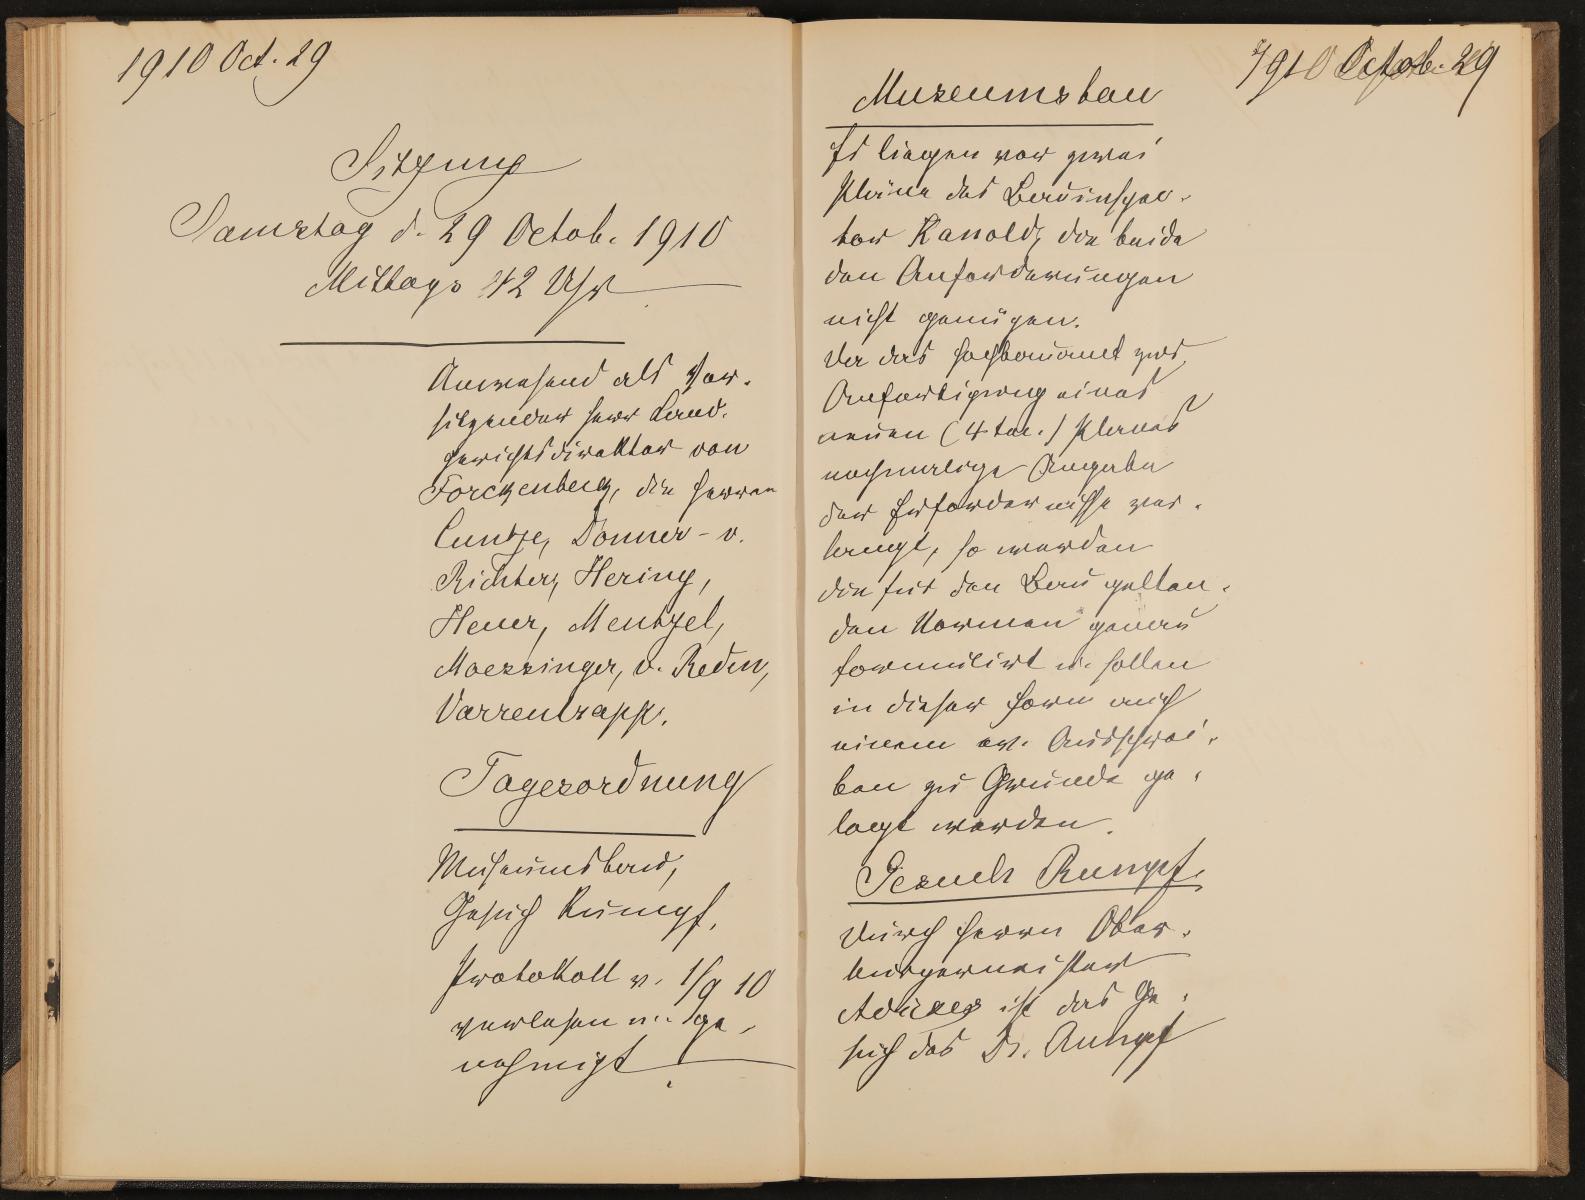 1910 Oct. 29
Sitzung
Samstag d. 29 Octob. 1910
Mittags 12 Uhr
Anwesend als Vor-
sitzender Herr Land-
gerichtsdirektor von
Forckenbeck, die Herren
Cuntze, Donner - v.
Richter, Hering,
Heuer, Mentzel,
Moessinger, v. Reden,
Varrentrapp.
Tagesordnung
Museumsbau,
Gesuch Rumpf.
Protokoll v. 1/9 10
verlesen u. ge-
nehmigt.
1910 Octob. 29
Museumsbau
Es liegen vor zwei
Pläne des Bauinspec-
tor Kanold, die beide
den Anforderungen
nicht genügen.
Da das Hochbauamt zur
Anfertigung eines
neuen (4ten.) Planes
nochmalige Angabe
der Erfordernisse ver-
langt, so werden
die für den Bau gelten-
den Normen genau
formulirt u. sollen
in dieser Form auch
einem ev. Ausschrei-
ben zu Grunde ge-
legt werden.
Gesuch Rumpf.
Durch Herrn Ober-
bürgermeister
Adickes ist das Ge-
such des Dr. Rumpf